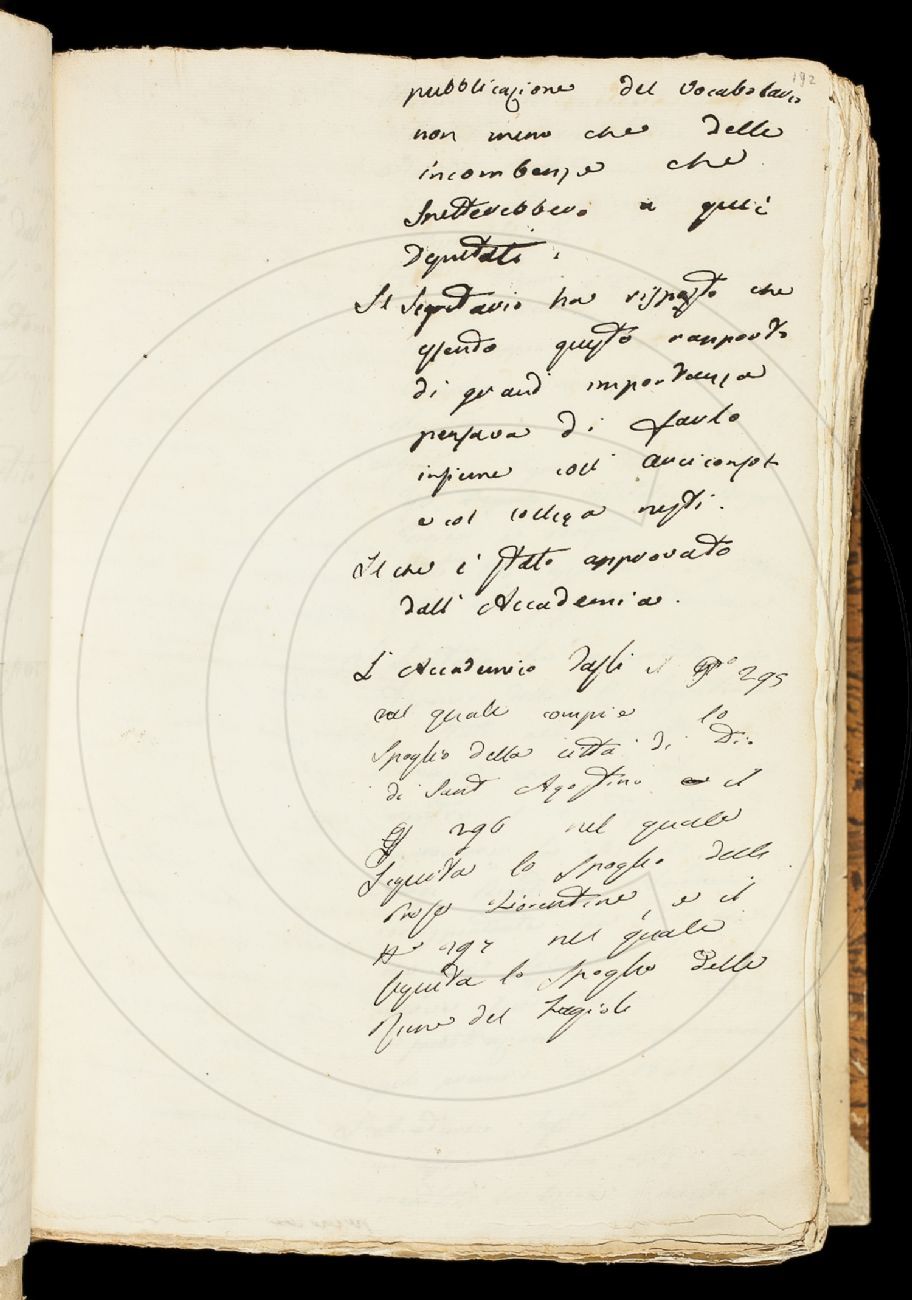 192
pubblicazione del Vocabolario
non meno che delle
incombenze che
spetterebbero a quei
Deputati.
Il Segretario ha risposto che
essendo questo rapporto
di grand importanza
pensava di farlo
insieme coll' Arciconsolo
e col collega nesti.
Il che è stato approvato
dall' Accademia.
L' Accademico il 295
nel quale compie lo
Spoglio della città di Dio
di Sant Agostino e il
296 nel quale
Seguita lo Spoglio delle
Prose Fiorentine, e il
N° 297 nel quale
seguita lo Spoglio delle
Rime del Fagiuoli